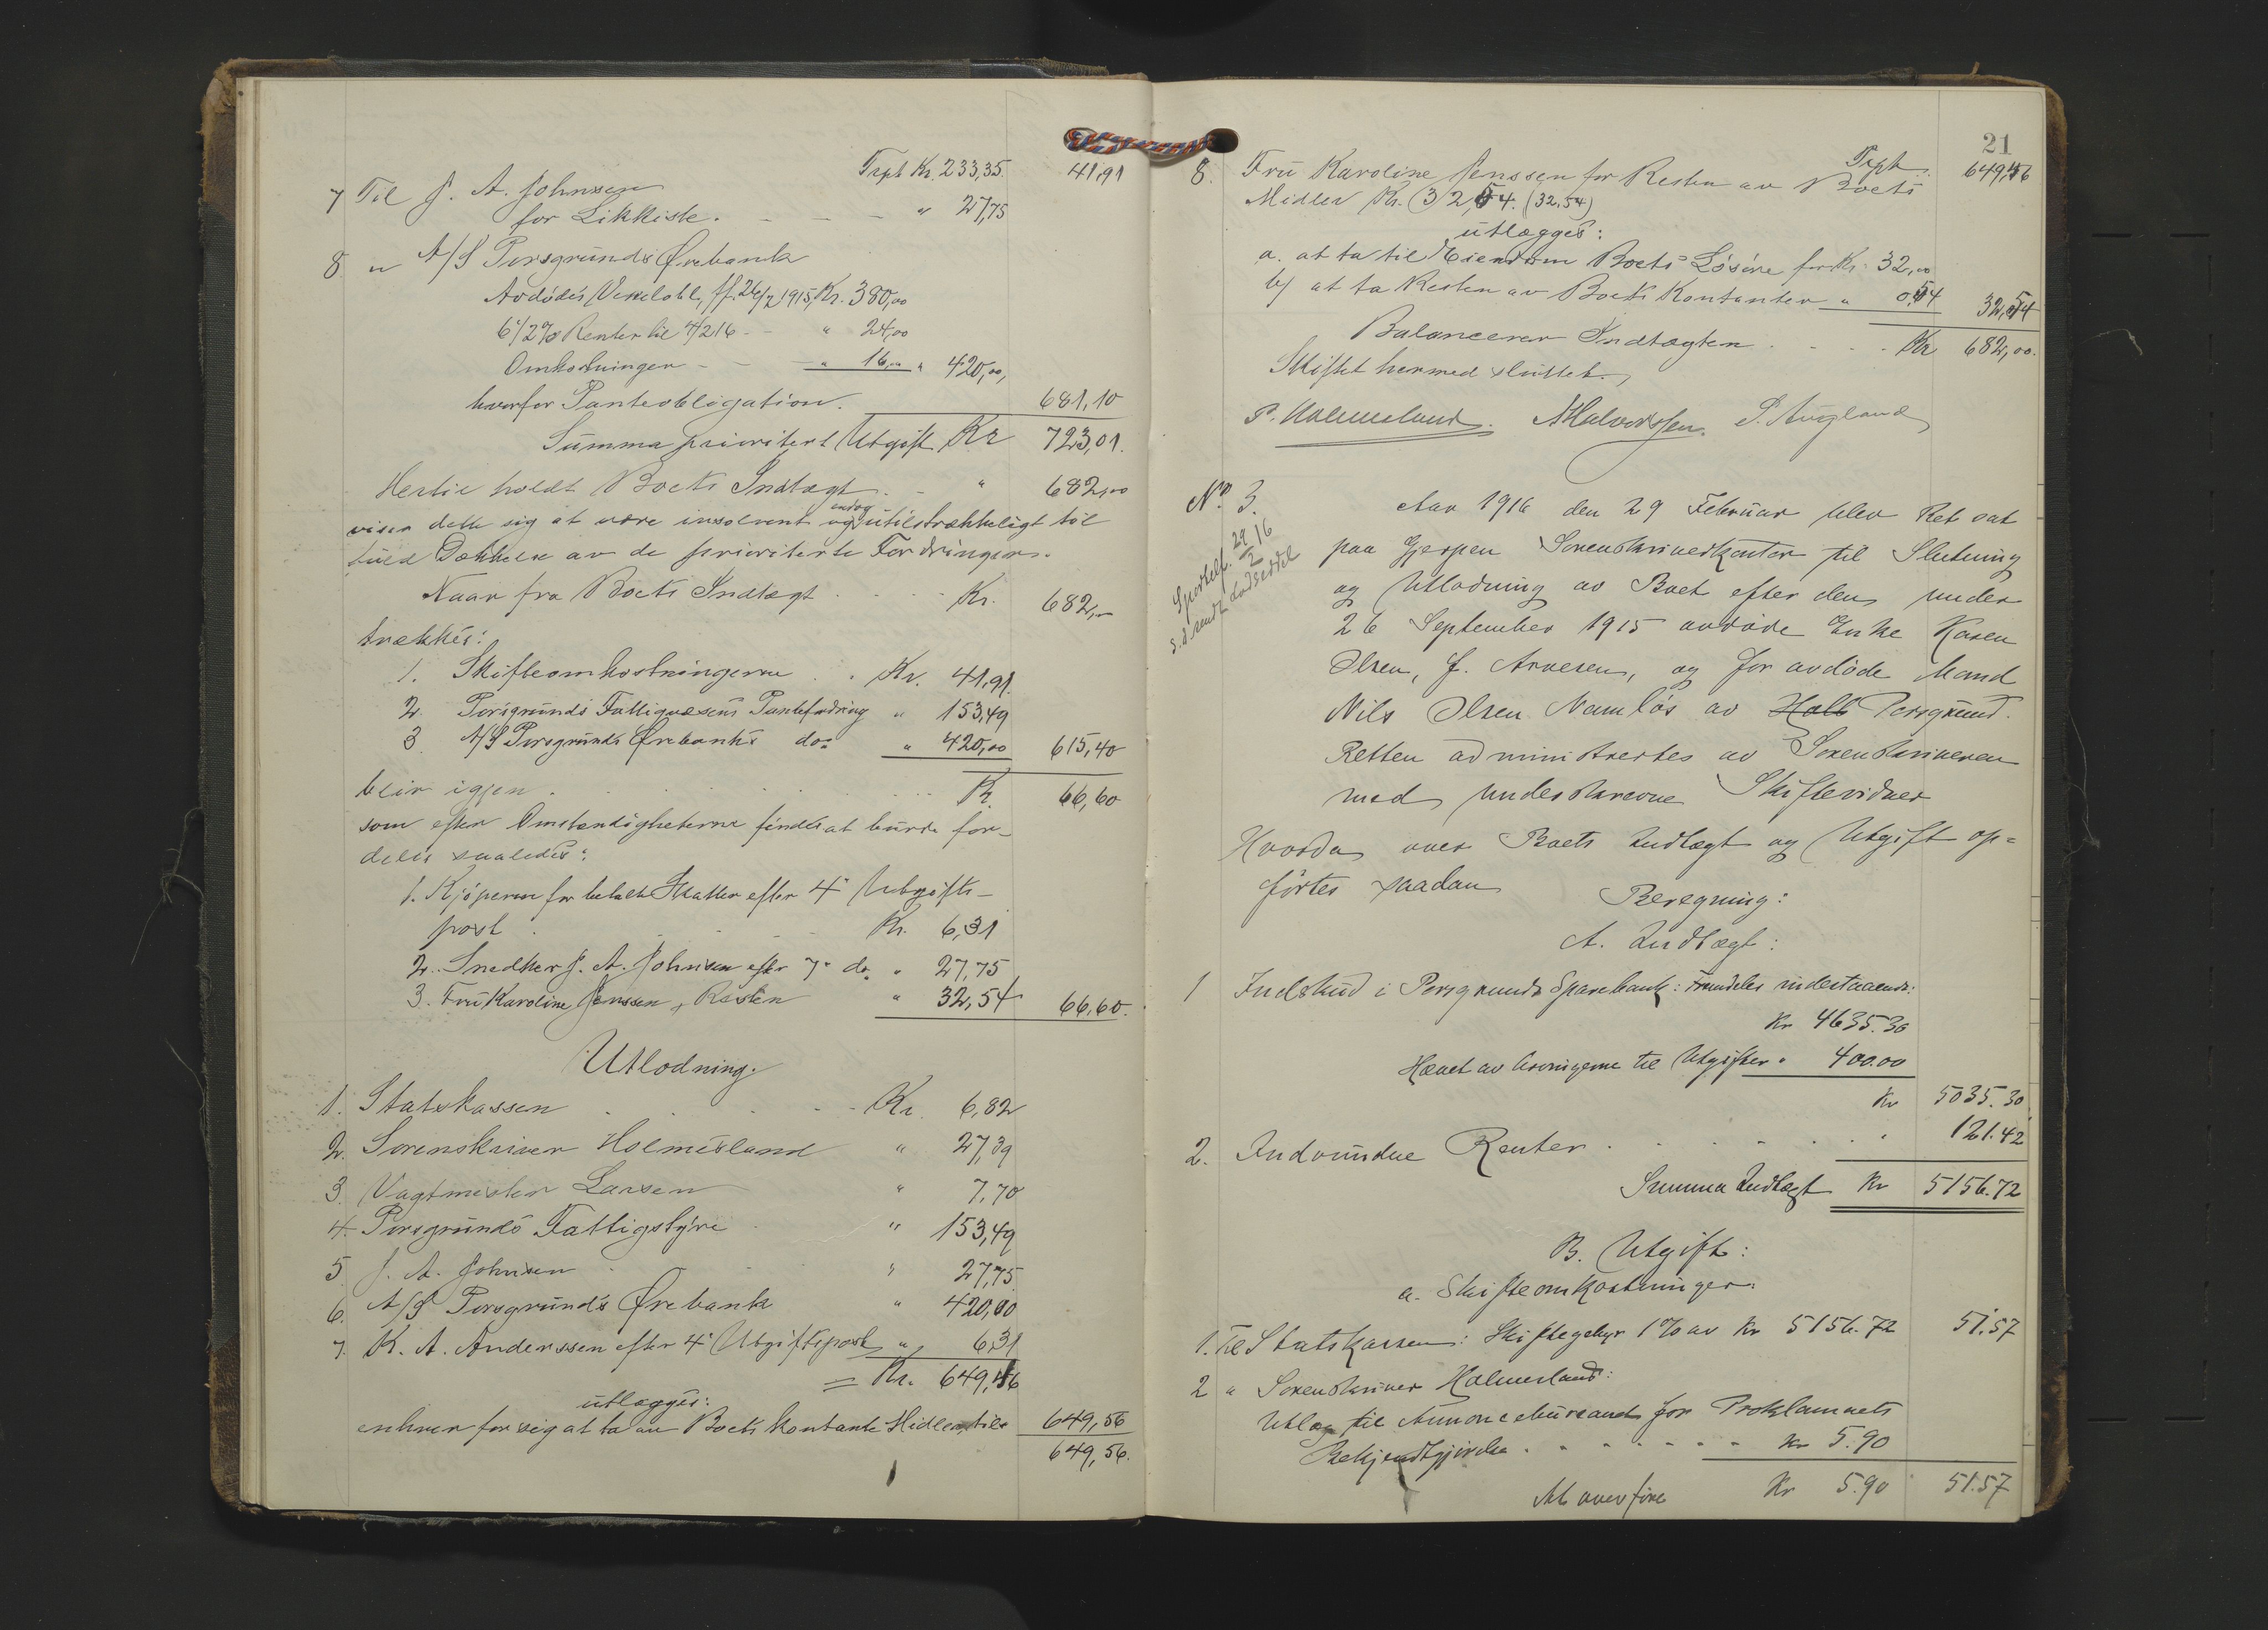 Trpt Kr. 233,35 41,91
7 Til J. A. Johnsen
for Likkiste. - - - " 27,75
8 " A/S Porsgrunds Ørebank
Avdødes Vexelobl. ff. 26/7 1915, Kr. 380,00
6 1/2 % Renter til 4/2 16 - - " 24,00
Omkostninger - - " 16,00 " 420,00,
hvorfor Panteobligation. 681,10
Summa prioritert Utgift Kr 723,01.
Hertil holdt Boets Indtægt - " 682,00
viser dette sig at være insolvent og endog utilstrækkeligt til
fuld Dækkelse av de prioriterte Fordringer.
Naar fra Boets Indtægt . . . Kr. 682,00
trækkes:
1. Skifteomkostningerne . . Kr. 41,91.
2. Porsgrunds Fattigvæsens Pantefordring " 153,49
3. A/S Porsgrunds Ørebanks do: " 420,00 615,40
blir igjen . . . . . Kr. 66,60
som efter Omstændigheterne findes at burde for-
deles saaledes:
1. Kjøperen for betalt Skatter efter 4° Utgifts-
post . . . . Kr. 6,31
2. Snedker J. A. Johnsen efter 7° do. " 27,75
3. Fru Karoline Jenssen, Resten " 32,54 66,60.
Utlodning.
1. Statskassen . . . . Kr. 6,82
2. Sorenskriver Holmesland " 27,39
3. Vagtmester Larsen " 7,70
4. Porsgrunds Fattigstyre " 153,49
5. J. A. Johnsen . . " 27,75
6. A/S Porsgrunds Ørebank " 420,00
7. K. A. Anderssen efter 4° Utgiftspost " 6,31
= Kr. 649,46
utlægges:
enhver for sig at ta av Boets kontante Midler tils 649,56
649,56.
21
Trpt. 649,46
8. Fru Karoline Jenssen for Resten av Boets
Midler Kr. 32,54. (32,54)
utlægges:
a. at ta til Eiendom Boets Løsøre for Kr. 32,00
b) at ta Resten av Boets Kontanter " 0,54 32,54
Balancerer Indtægten . . . . Kr 682,00.
Skiftet hermed sluttet.
P. Holmesland. N Halvorssen. S. Augland
No. 3.
Sportelf. 29/2 16
s.d. sendt Lodseddel
Aar 1916 den 29 Februar blev Ret sat
paa Gjerpen Sorenskriverkontor til Slutning
og Utlodning av Boet efter den under
26 September 1915 avdøde Enke Karen
Olsen, f. Arvesen, og før avdøde Mand
Nils Olsen Namløs av Hall Porsgrund.
Retten administrertes av Sorenskriveren
med underskrevne Skiftevidner
Hvorda over Boets Indtægt og Utgift op=
førtes saadan
Beregning:
A. Indtægt:
1 Indskud i Porsgrunds Sparebank: Fremdeles indestaaende:
Kr 4635.30
Hævet av Arvingerne til Utgifter " 400.00
Kr 5035.30
2. Indvundne Renter . . . . . " 121.42
Summa Indtægt Kr 5156.72
B. Utgift:
a. Skifteomkostninger.
1. Til Statskassen: Skiftegebyr 1 % av Kr 5156.72 51.57
2 " Sorenskriver Holmesland:
Utlæg til Annoncebureauet for Proklamaets
Bekjendtgjørelse . . . . . . Kr 5.90
At overføre Kr 5.90 51.57